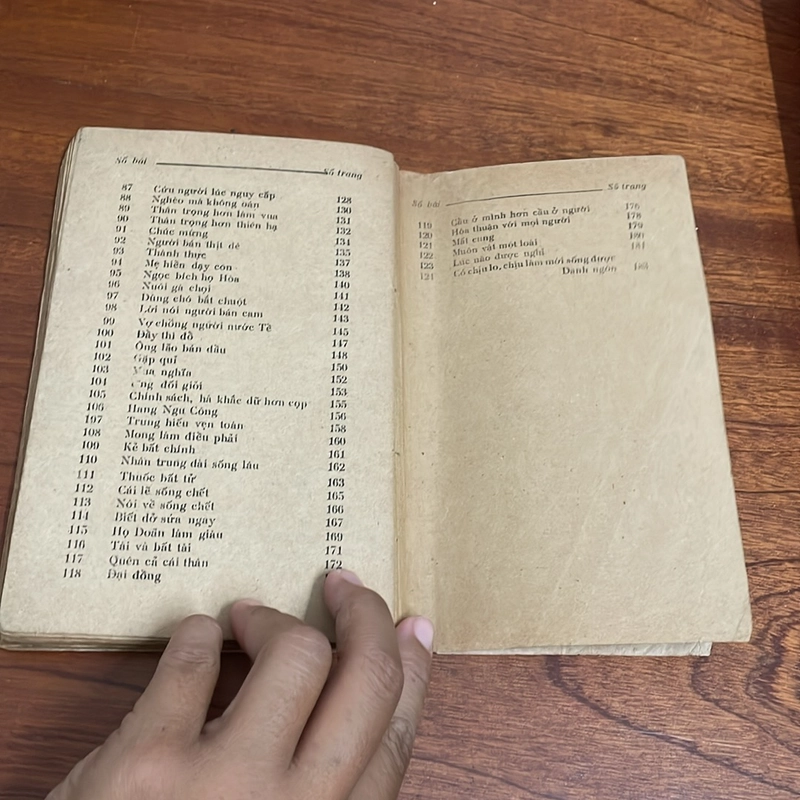 Số bài Số trang
87 Cứu người lúc nguy cấp 128
88 Nghèo mà không oán 130
89 Thận trọng hơn làm vua 131
90 Thận trọng hơn thiên hạ 132
91 Chúc mừng 134
92 Người bán thịt dê 135
93 Thành thực 137
94 Mẹ hiền dạy con 138
95 Ngọc bích họ Hòa 140
96 Nuôi gà chọi 141
97 Dùng chó bắt chuột 142
98 Lời nói người bán cam 143
99 Vợ chồng người nước Tề 145
100 Đầy thì đổ 147
101 Ông lão bán dầu 148
102 Gặp quỉ 150
103 Mua nghĩa 152
104 Ưng đổi giỏi 153
105 Chính sách, hà khắc dữ hơn cọp 155
106 Hang Ngu Công 156
197 Trung hiếu vẹn toàn 158
108 Mong làm điều phải 160
109 Kẻ bất chính 161
110 Nhân trung dài sống lâu 162
111 Thuốc bất tử 163
112 Cái lẽ sống chết 165
113 Nói về sống chết 166
114 Biết dở sửa ngay 167
115 Họ Doãn làm giàu 169
116 Tài và bất tài 171
117 Quên cả cái thân 172
118 Đại đồng
Số bài Số trang
119 Cầu ở mình hơn cầu ở người 176
120 Hòa thuận với mọi người 178
121 Mất cung 179
122 Muôn vật một loài 180
123 Lúc nào được nghỉ 181
124 Có chịu lo, chịu làm mới sống được
Danh ngôn 183